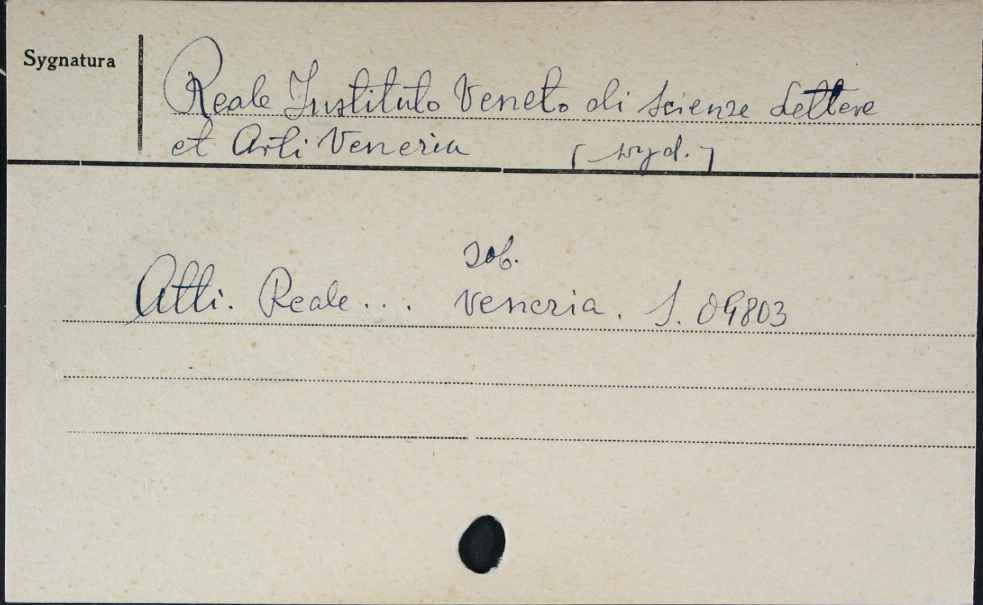 Sygnatura
Reale Instituto Veneto di Scienze Lettere
et Arti Venezia [wyd.]
zob.
Atti. Reale... Venezia. S. 09803